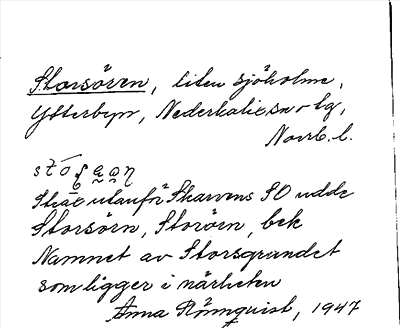 Storsören, liten sjöholme,
Ytterbyn, Nederkalix sn o lg,
Norrb. l.
Strax utanför Skarvens SO udde
Storsörn, Storörn, bek
Namnet av Storsgrundet
som ligger i närheten
Anna Rönnquist, 1947